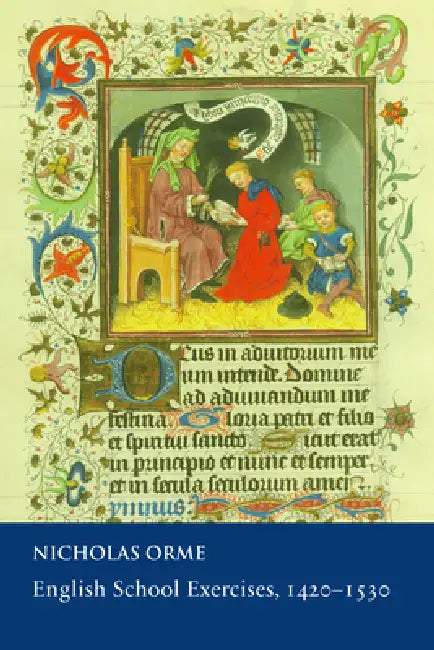 Deus in adiutorium me
um intende. Domine
ad adiuuandum me
festina. Gloria patri et filio
et spiritui sancto. Sicut erat
in principio et nunc et semper,
et in secula seculorum amen.
ymnus:
NICHOLAS ORME
English School Exercises, 1420–1530